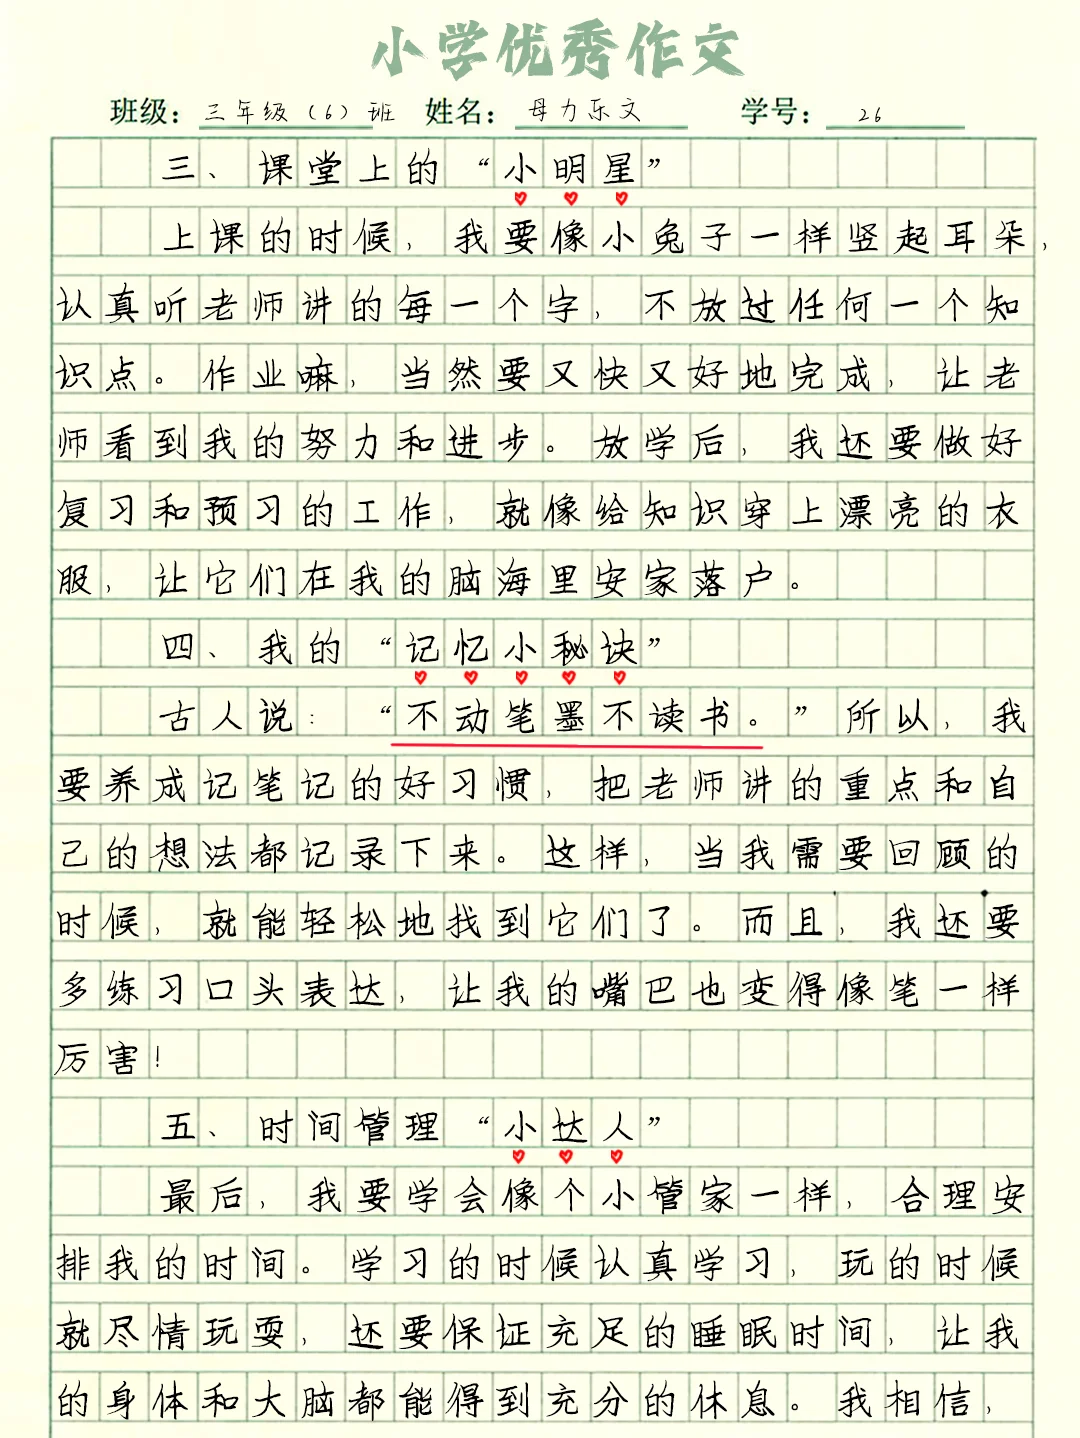 小学优秀作文
班级：三年级（6）班 姓名：母力乐文 学号：26
三、课堂上的“小明星”
上课的时候，我要像小兔子一样竖起耳朵，
认真听老师讲的每一个字，不放过任何一个知
识点。作业嘛，当然要又快又好地完成，让老
师看到我的努力和进步。放学后，我还要做好
复习和预习的工作，就像给知识穿上漂亮的衣
服，让它们在我的脑海里安家落户。
四、我的“记忆小秘诀”
古人说：“不动笔墨不读书。”所以，我
要养成记笔记的好习惯，把老师讲的重点和自
己的想法都记录下来。这样，当我需要回顾的
时候，就能轻松地找到它们了。而且，我还要
多练习口头表达，让我的嘴巴也变得像笔一样
厉害！
五、时间管理“小达人”
最后，我要学会像个小管家一样，合理安
排我的时间。学习的时候认真学习，玩的时候
就尽情玩耍，还要保证充足的睡眠时间，让我
的身体和大脑都能得到充分的休息。我相信，